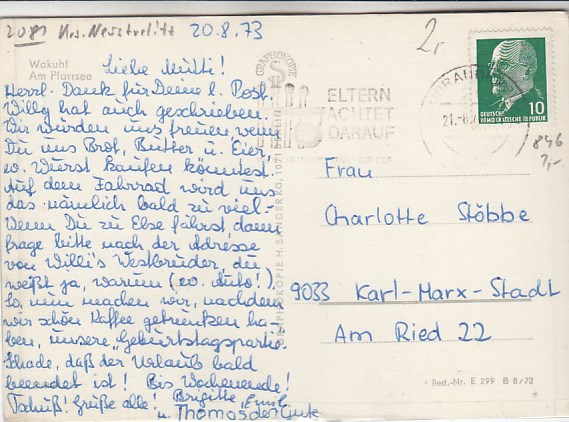 2081 Krs. Neustrelitz 20.8.73
Wokuhl
Am Pfarrsee
Liebe Mutti!
Herzl. Dank für Deine l. Post.
Willy hat auch geschrieben.
Wir würden uns freuen wenn
Du uns Brot, Butter u. Eier,
u. Wurst kaufen könntest.
Auf dem Fahrrad wird uns
das nämlich bald zu viel-
Wenn Du zu Else fährst dann
frage bitte nach der Adresse
von Willi's Westbruder, du
weißt ja, warum (w. Auto!)
So, nun machen wir, nachdem
wir schön Kaffee getrunken ha-
ben, unsere "Geburtstagspartie.
Schade, daß der Urlaub bald
beendet ist! Bis Wochenende!
Tschüß! Grüße alle! Brigitte Emil
u. Thomas der Gute
GRAPHOKOPIE
GRAPHOKOPIE H. SANDER KG, 1071 BERLIN
ELTERN
ACHTET
DARAUF
21.-8.
10
DEUTSCHE
DEMOKRATISCHE REPUBLIK
2,-
846
7,-
Frau
Charlotte Stöbbe
9033 Karl-Marx-Stadt
Am Ried 22
Best.-Nr. E 299 B 8/72